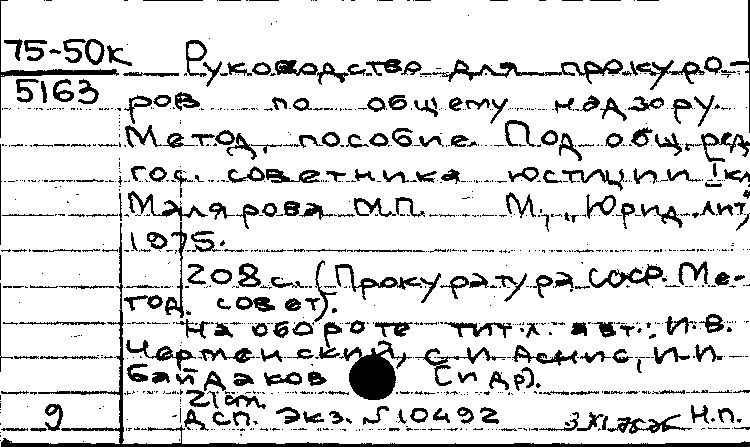 75-50к Руководство для прокуро-
5163 ров по общему надзору.
Метод. пособие. Под общ. ред.
гос. советника юстиции I кл.
Малярова М.П. М., "Юрид. лит.",
1975.
208 с. (Прокуратура СССР. Ме-
тод. совет).
На обороте тит. л. авт.: И.В.
Черменский, С.И. Аснис, И.И.
Байдаков [и др].
21 cm.
9 ДСП. Экз. № 10492 Н.П.